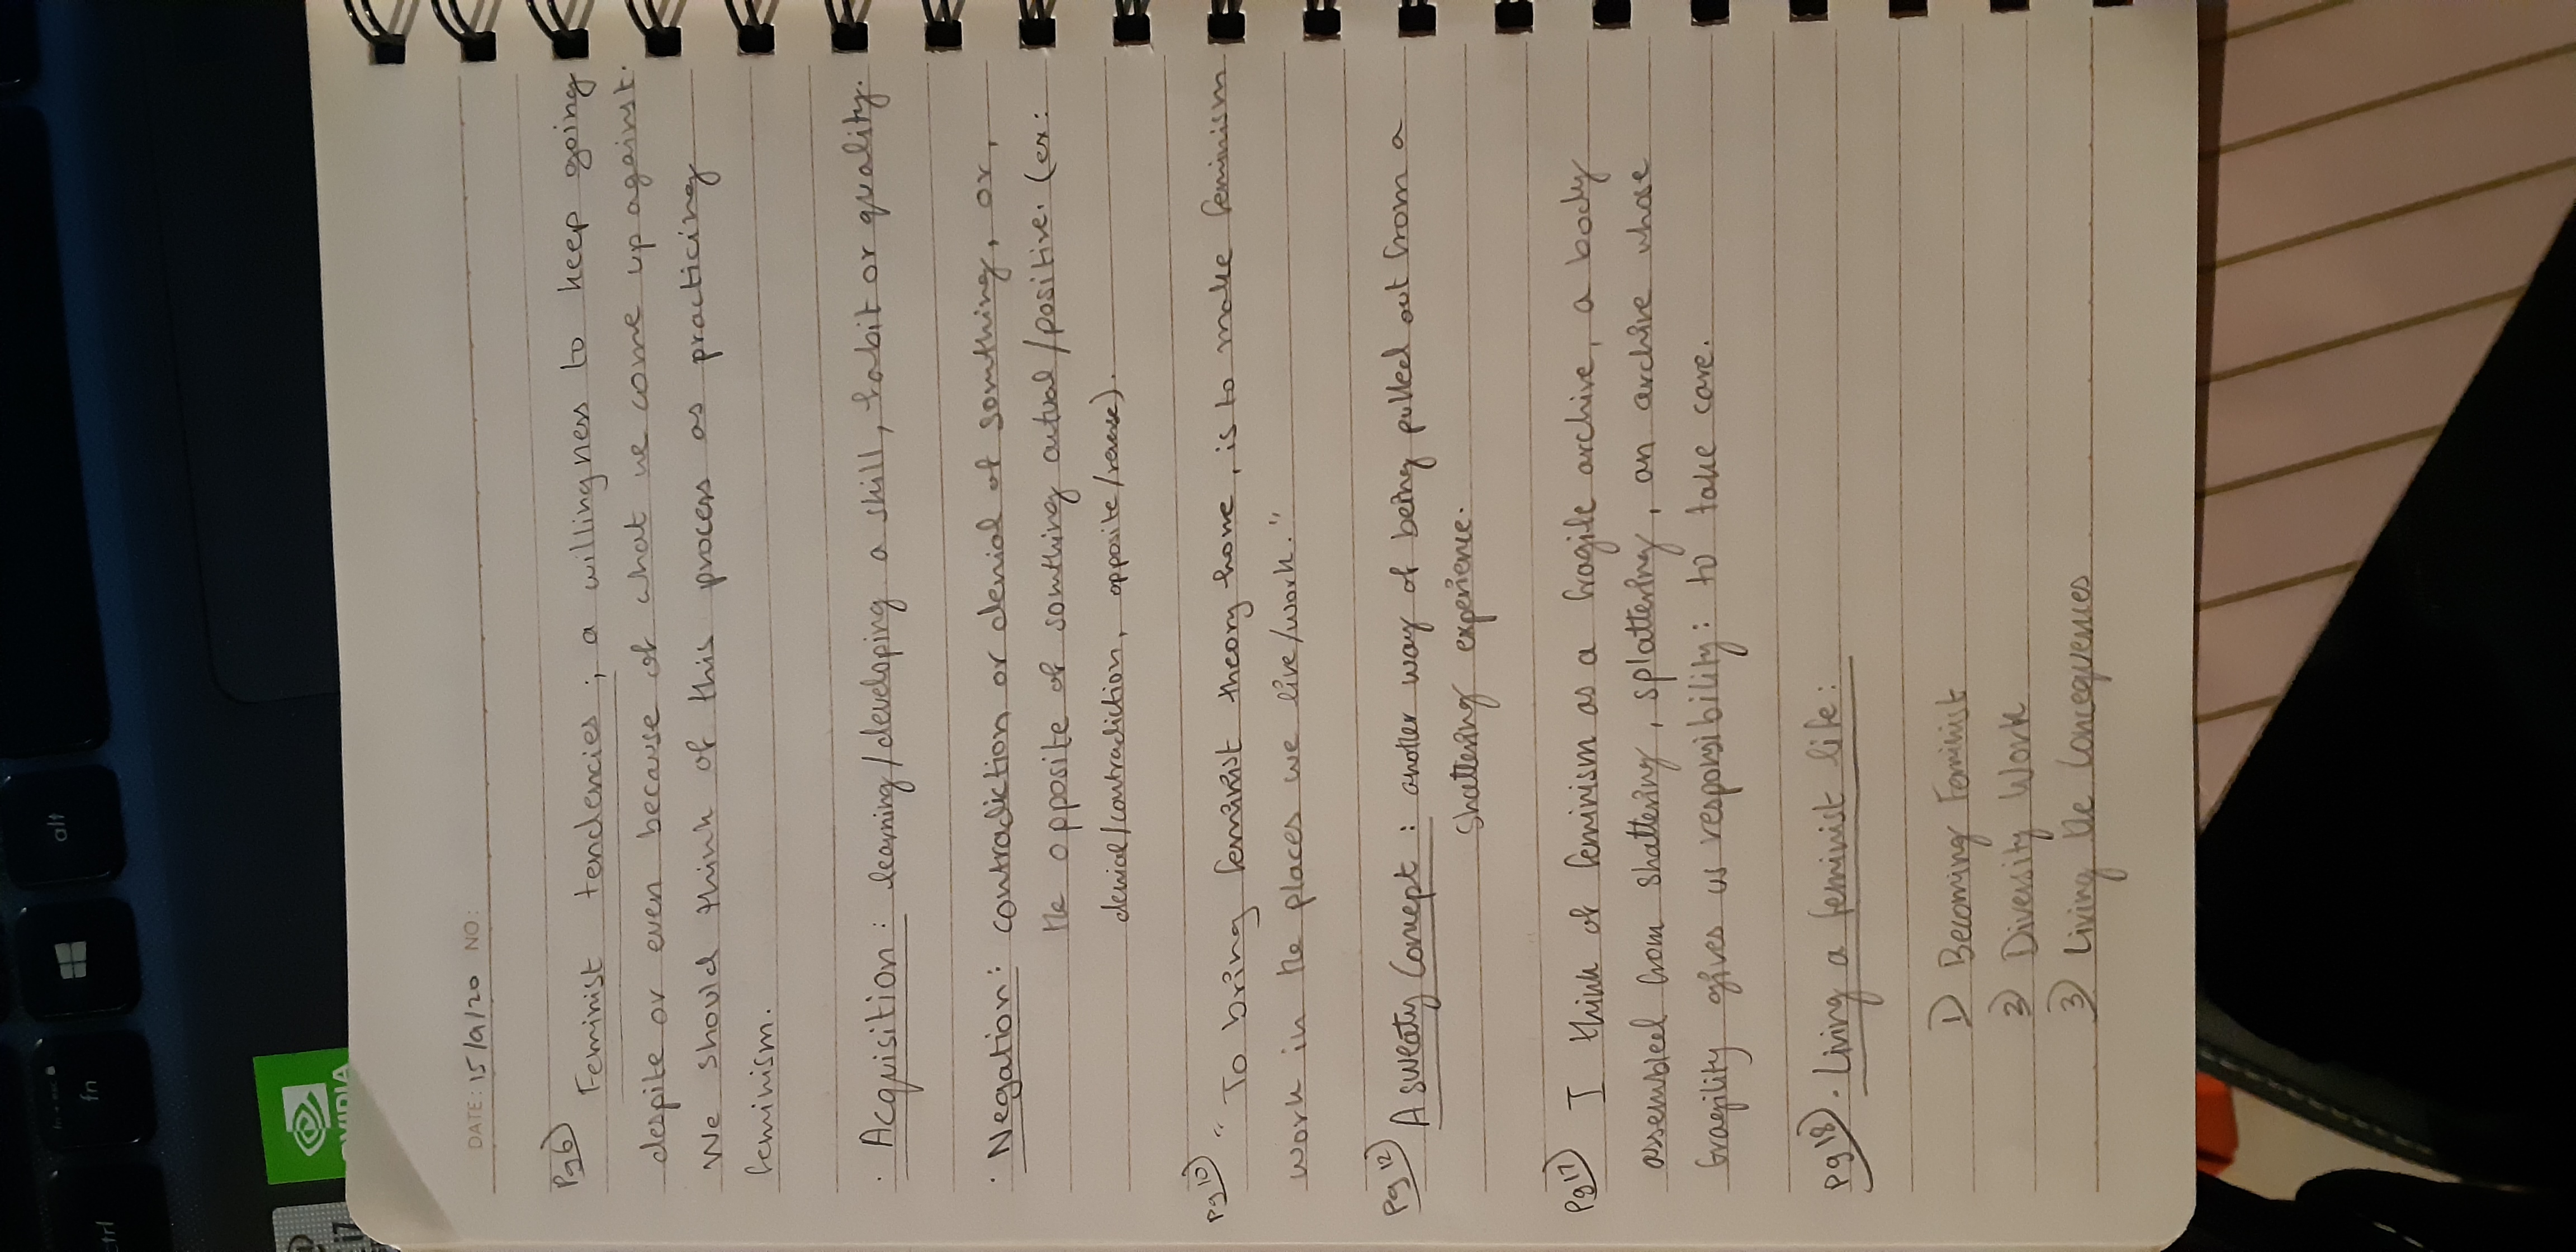 ctrl
fn
alt
i7
NVIDIA
DATE: 15/9/20 NO:
Pg 6
Feminist tendencies ; a willingness to keep going
despite or even because of what we come up against.
We should think of this process as practicing
feminism.
· Acquisition : learning/developing a skill, habit or quality.
· Negation : contradiction or denial of somthing, or,
the opposite of somthing actual/positive. (ex:
denial/contradiction, opposite/reverse).
Pg 10 " To bring feminist theory home, is to make feminism
work in the places we live/work."
Pg 12 A sweaty Concept : another way of being pulled out from a
shattering experience.
Pg 17 I think of feminism as a fragile archive, a body
assembled from shattering, splattering, an archive whose
fragility gives us responsibility: to take care.
Pg 18 . Living a feminist life:
1) Becoming Feminist
2) Diversity Work
3) Living the Concequences